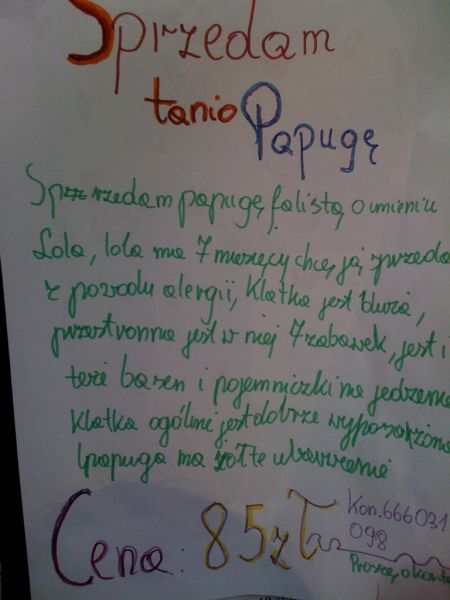 Sprzedam
tanio Papugę
Sprzedam papugę falistą o imieniu
Lola, lola ma 7 miesięcy chcę ją sprzeda
z powodu alergii, Klatka jest duża,
przestronna jest w niej 7 zabawek, jest i
też basen i pojemniczki na jedzenie
Klatka ogólni jest dobrze wyposażona
papuga ma żółte ubarwienie
Cena: 85 zł
Kon. 666031
098
Proszę o konta